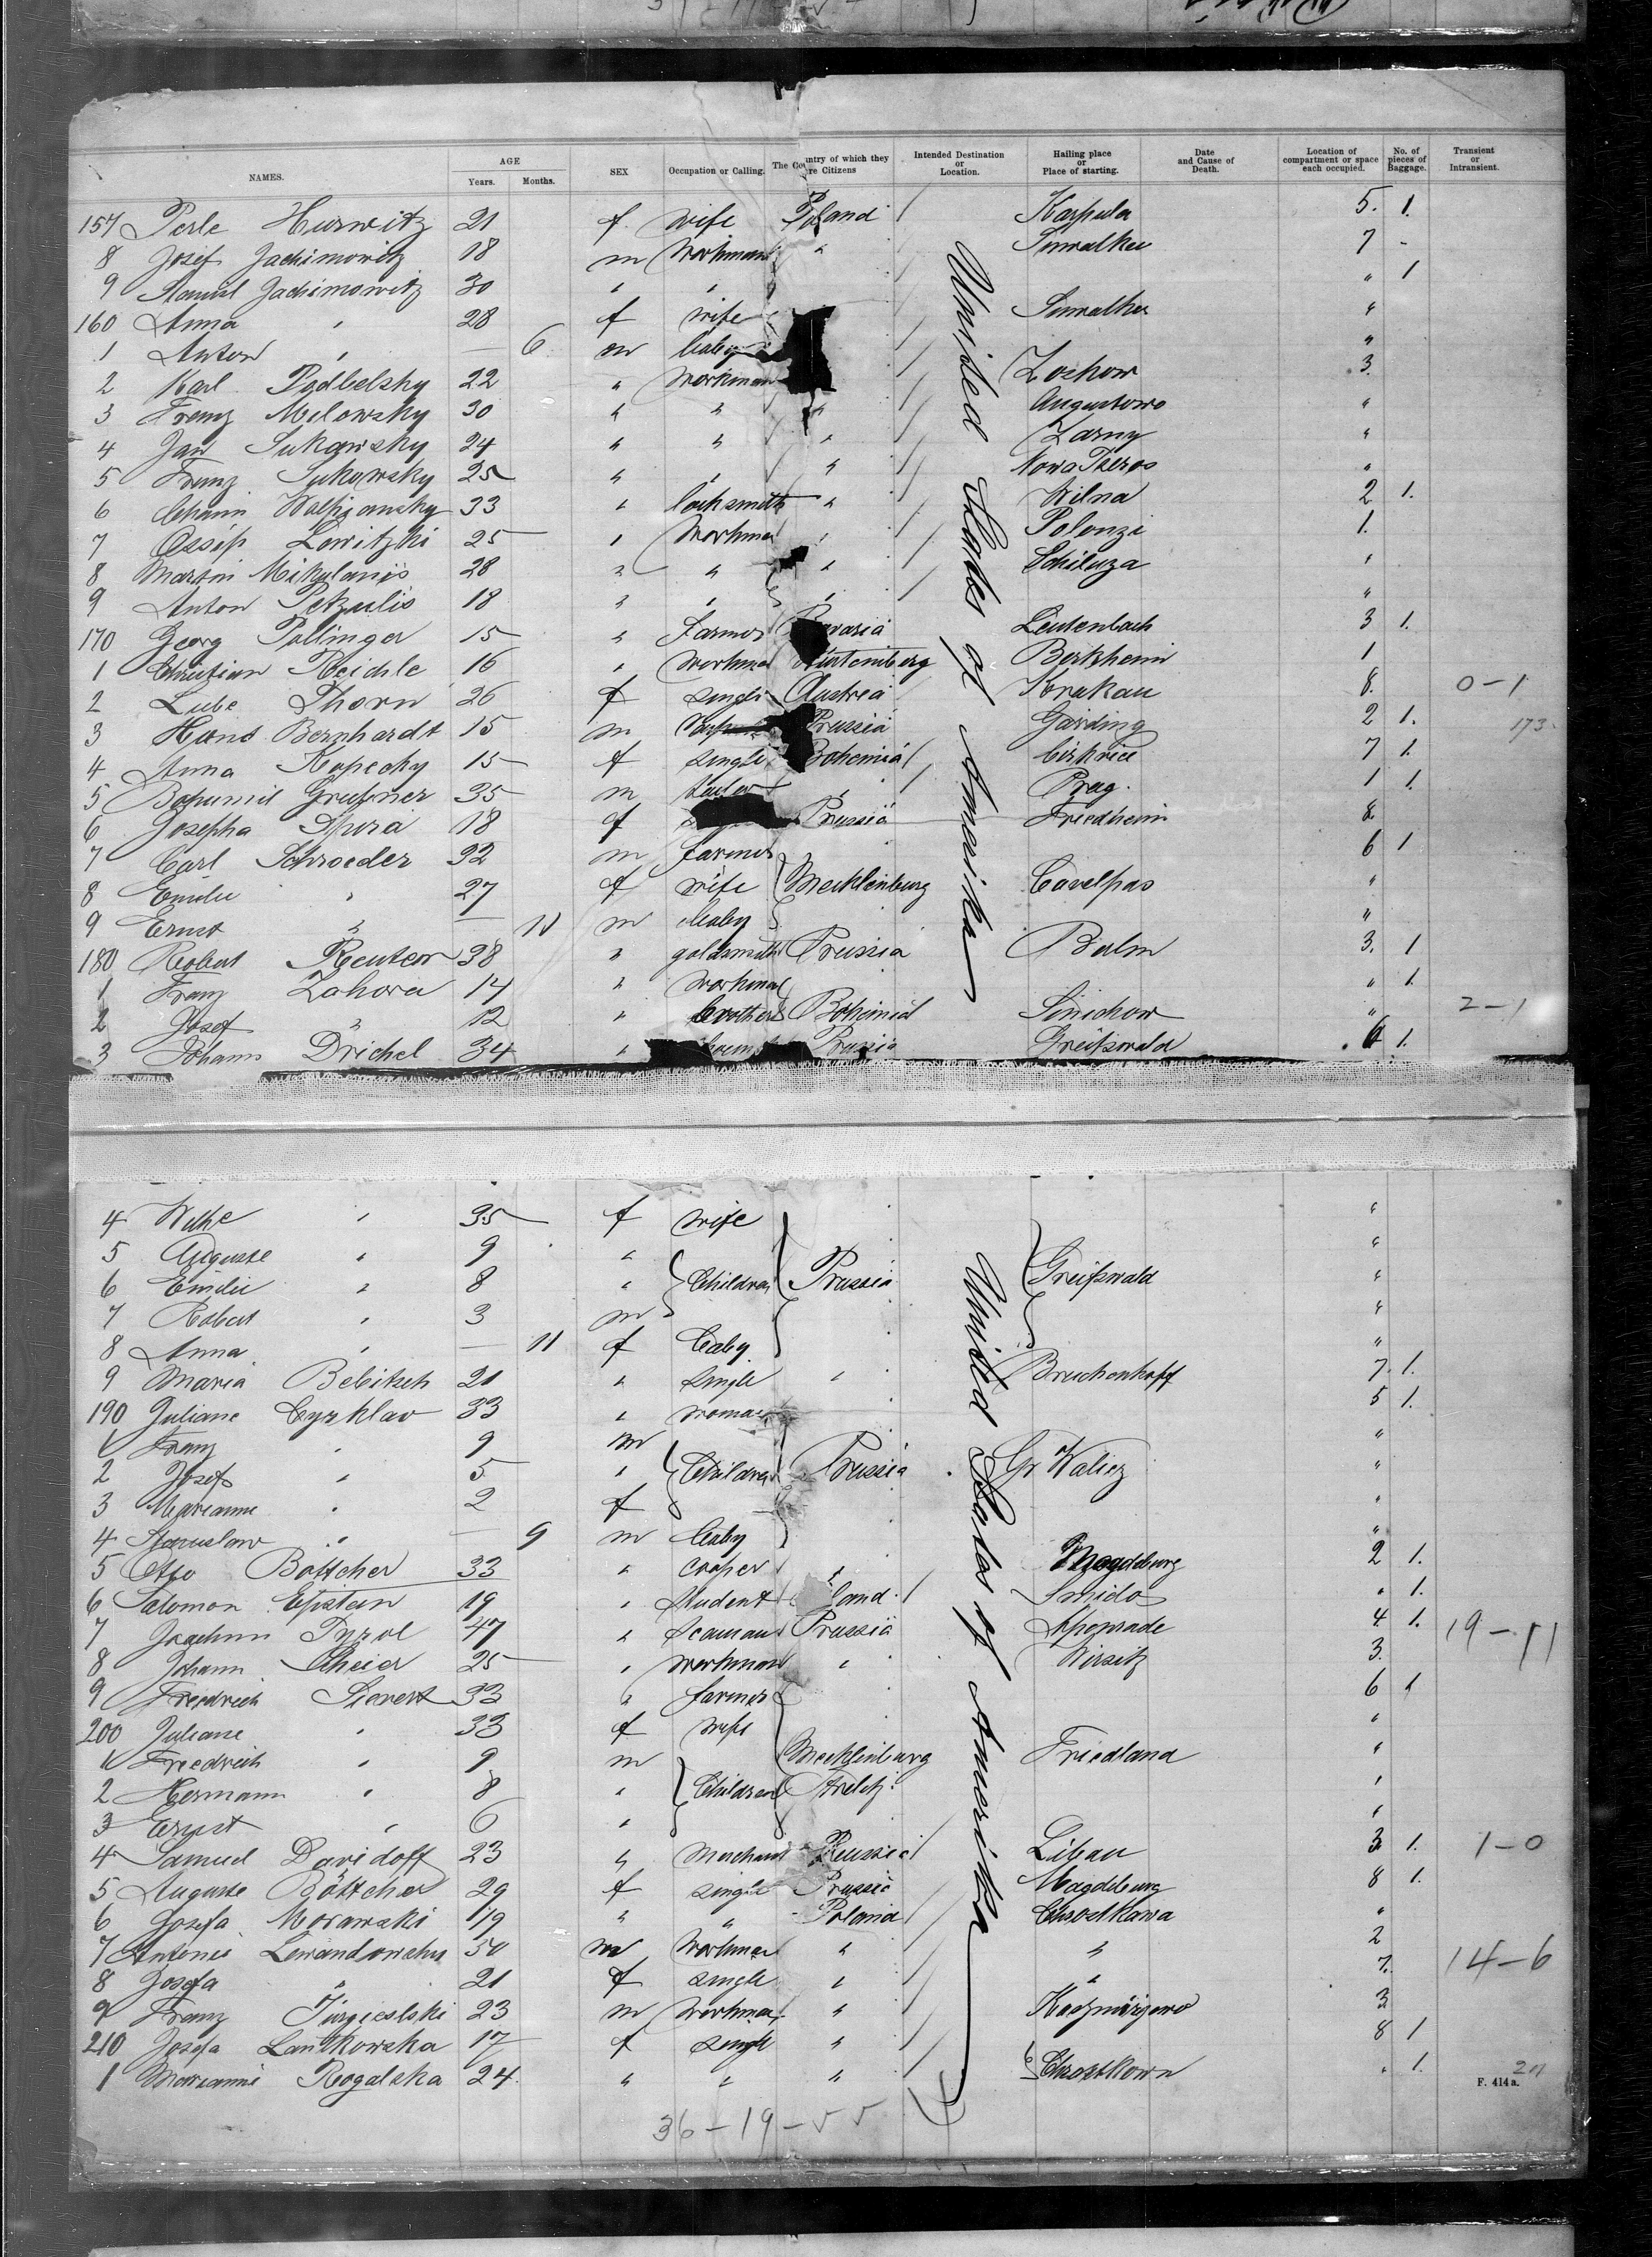 NAMES. AGE Years. Months. SEX Occupation or Calling. The Country of which they are Citizens Intended Destination or Location. Hailing place or Place of starting. Date and Cause of Death. Location of compartment or space each occupied. No. of pieces of Baggage. Transient or Intransient.
157 Perle Hurwitz 21 f wife Poland / Karpula 5. 1.
8 Josef Jachimowitz 18 m Workman " / Suwalken 7 -
9 Jachimowitz 30 " " / " 1
160 Anna " 28 f wife / Suwalken "
1 Anton " — 6 m baby / "
2 Karl Podbelsky 22 " Workman / Loshow 3.
3 Franz Milowsky 30 " " " / Augustowo "
4 Jan Sukowsky 24 " " " / Zarny "
5 Franz Sukowsky 25 " " " / Nowa "
6 Chaim Wolkjansky 33 " locksmith " / Wilna 2 1.
7 Ossip Lewitzki 25 " Workman " / Polonzi 1.
8 Martin Mikulanis 28 " " " / Schiluza "
9 Anton Petzulis 18 " " " / "
170 Georg Pollinger 15 " Farmer Bavaria Leutenbach 3 1.
1 Christian Reichle 16 " Workman Würtemberg Berkheim 1
2 Lube Thorn 26 f single Austria / Krakau 8. 0-1
3 Hans Bernhardt 15 m Prussia Garding 2 1. 173
4 Anna Kopecky 15 f single Bohemia / 7 1.
5 Bohumil Grubner 35 m " / Prag. 1 1.
6 Josepha Spira 18 f Prussia Friedheim 8.
7 Carl Schroeder 32 m farmer 6 1
8 Emilie " 27 f wife Mecklenburg Cavelpas "
9 Ernst " — 11 m baby "
180 Robert Reuter 38 " goldsmith Prussia Berlin 3. 1
1 Franz Zahora 14 " workman " 1.
2 Josef " 12 " brother Bohemia Sinichow " 2-1
3 Johann Drichel 34 " Prussia Greifswald 6 1.
United States of Amerika
4 Wilhe " 35 f wife "
5 Auguste " 9 " "
6 Emilie " 8 " Children Prussia Greifswald "
7 Robert " 3 m "
8 Anna " — 11 f baby "
9 Maria Bebitsch 21 " single " 7. 1.
190 Juliane Cyrklav 33 " woman 5 1.
1 Franz " 9 m "
2 Josef " 5 " Children Prussia Gr Walicz "
3 Marianne " 2 f "
4 Stanislaw " — 9 m baby "
5 Otto Bottcher 33 " cooper " Magdeburg 2 1.
6 Salomon Epstein 19 " student Poland / Smido " 1.
7 Joachim 47 " Seaman Prussia Apenrade 4 1. 19-11
8 Johann Scheier 25 " workman " Wirsitz 3.
9 Friedrich Sievert 33 " farmer 6 1
200 Juliane " 33 f wife "
1 Friedrich " 9 m Mecklenburg Friedland "
2 Hermann " 8 " Children Strelitz "
3 Ernst " 6 " "
4 Samuel Davidoff 23 " Merchant Russia / Libau 3 1. 1-0
5 Auguste Böttcher 29 f single Prussia Magdeburg 8 1.
6 Josefa Morawski 19 " " Poland / Chrostkawa "
7 Antonie Lewandowsky 50 m Workman " / " 2
8 Josefa " 21 f single " / " 7. 14-6
9 Franz 23 m Workman " / 3
210 Josefa Lankowska 17 f single " / 8 1
1 Marianne Rogalska 24 " " " / Chrostkown " 1. 211
United States of Amerika
F. 414a.
36-19-55